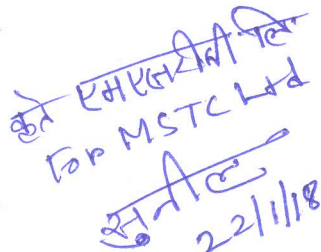 कृते एमएसटीसी लि
For MSTC Ltd
सुनील
22/1/18